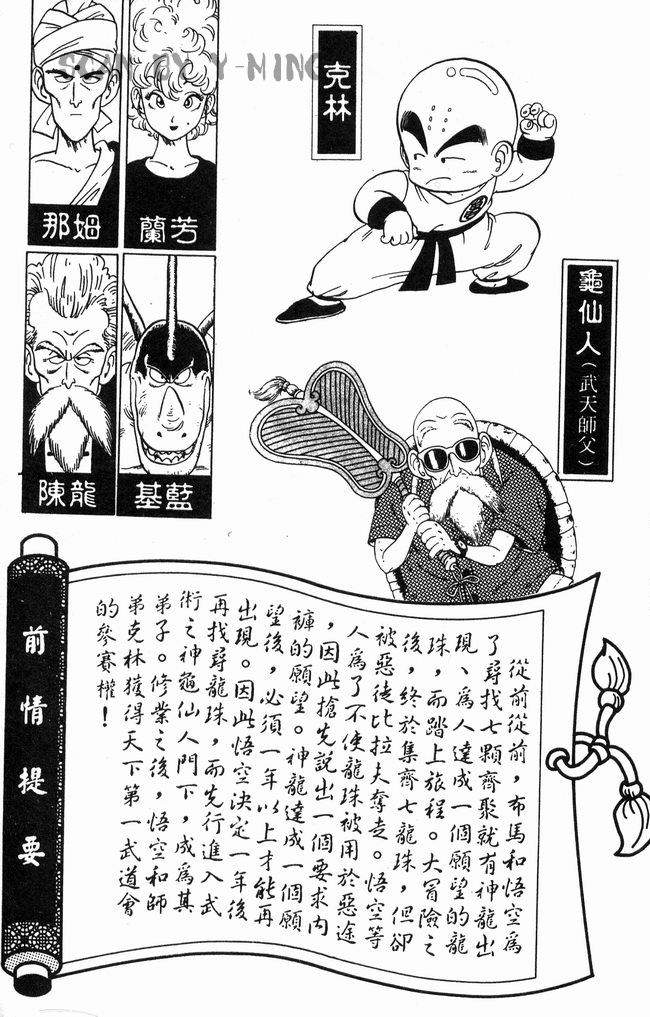 SCAN BY Y-MING
克林
龜仙人（武天師父）
那姆
蘭芳
陳龍
基藍
前情提要
從前從前，布馬和悟空爲
了尋找七顆齊聚就有神龍出
現、爲人達成一個願望的龍
珠，而踏上旅程。大冒險之
後，終於集齊七龍珠，但卻
被惡徒比拉夫奪走。悟空等
人爲了不使龍珠被用於惡途
，因此搶先說出一個要求內
褲的願望。神龍達成一個願
望後，必須一年以上才能再
出現。因此悟空決定一年後
再找尋龍珠，而先行進入武
術之神龜仙人門下，成爲其
弟子。修業之後，悟空和師
弟克林獲得天下第一武道會
的參賽權！